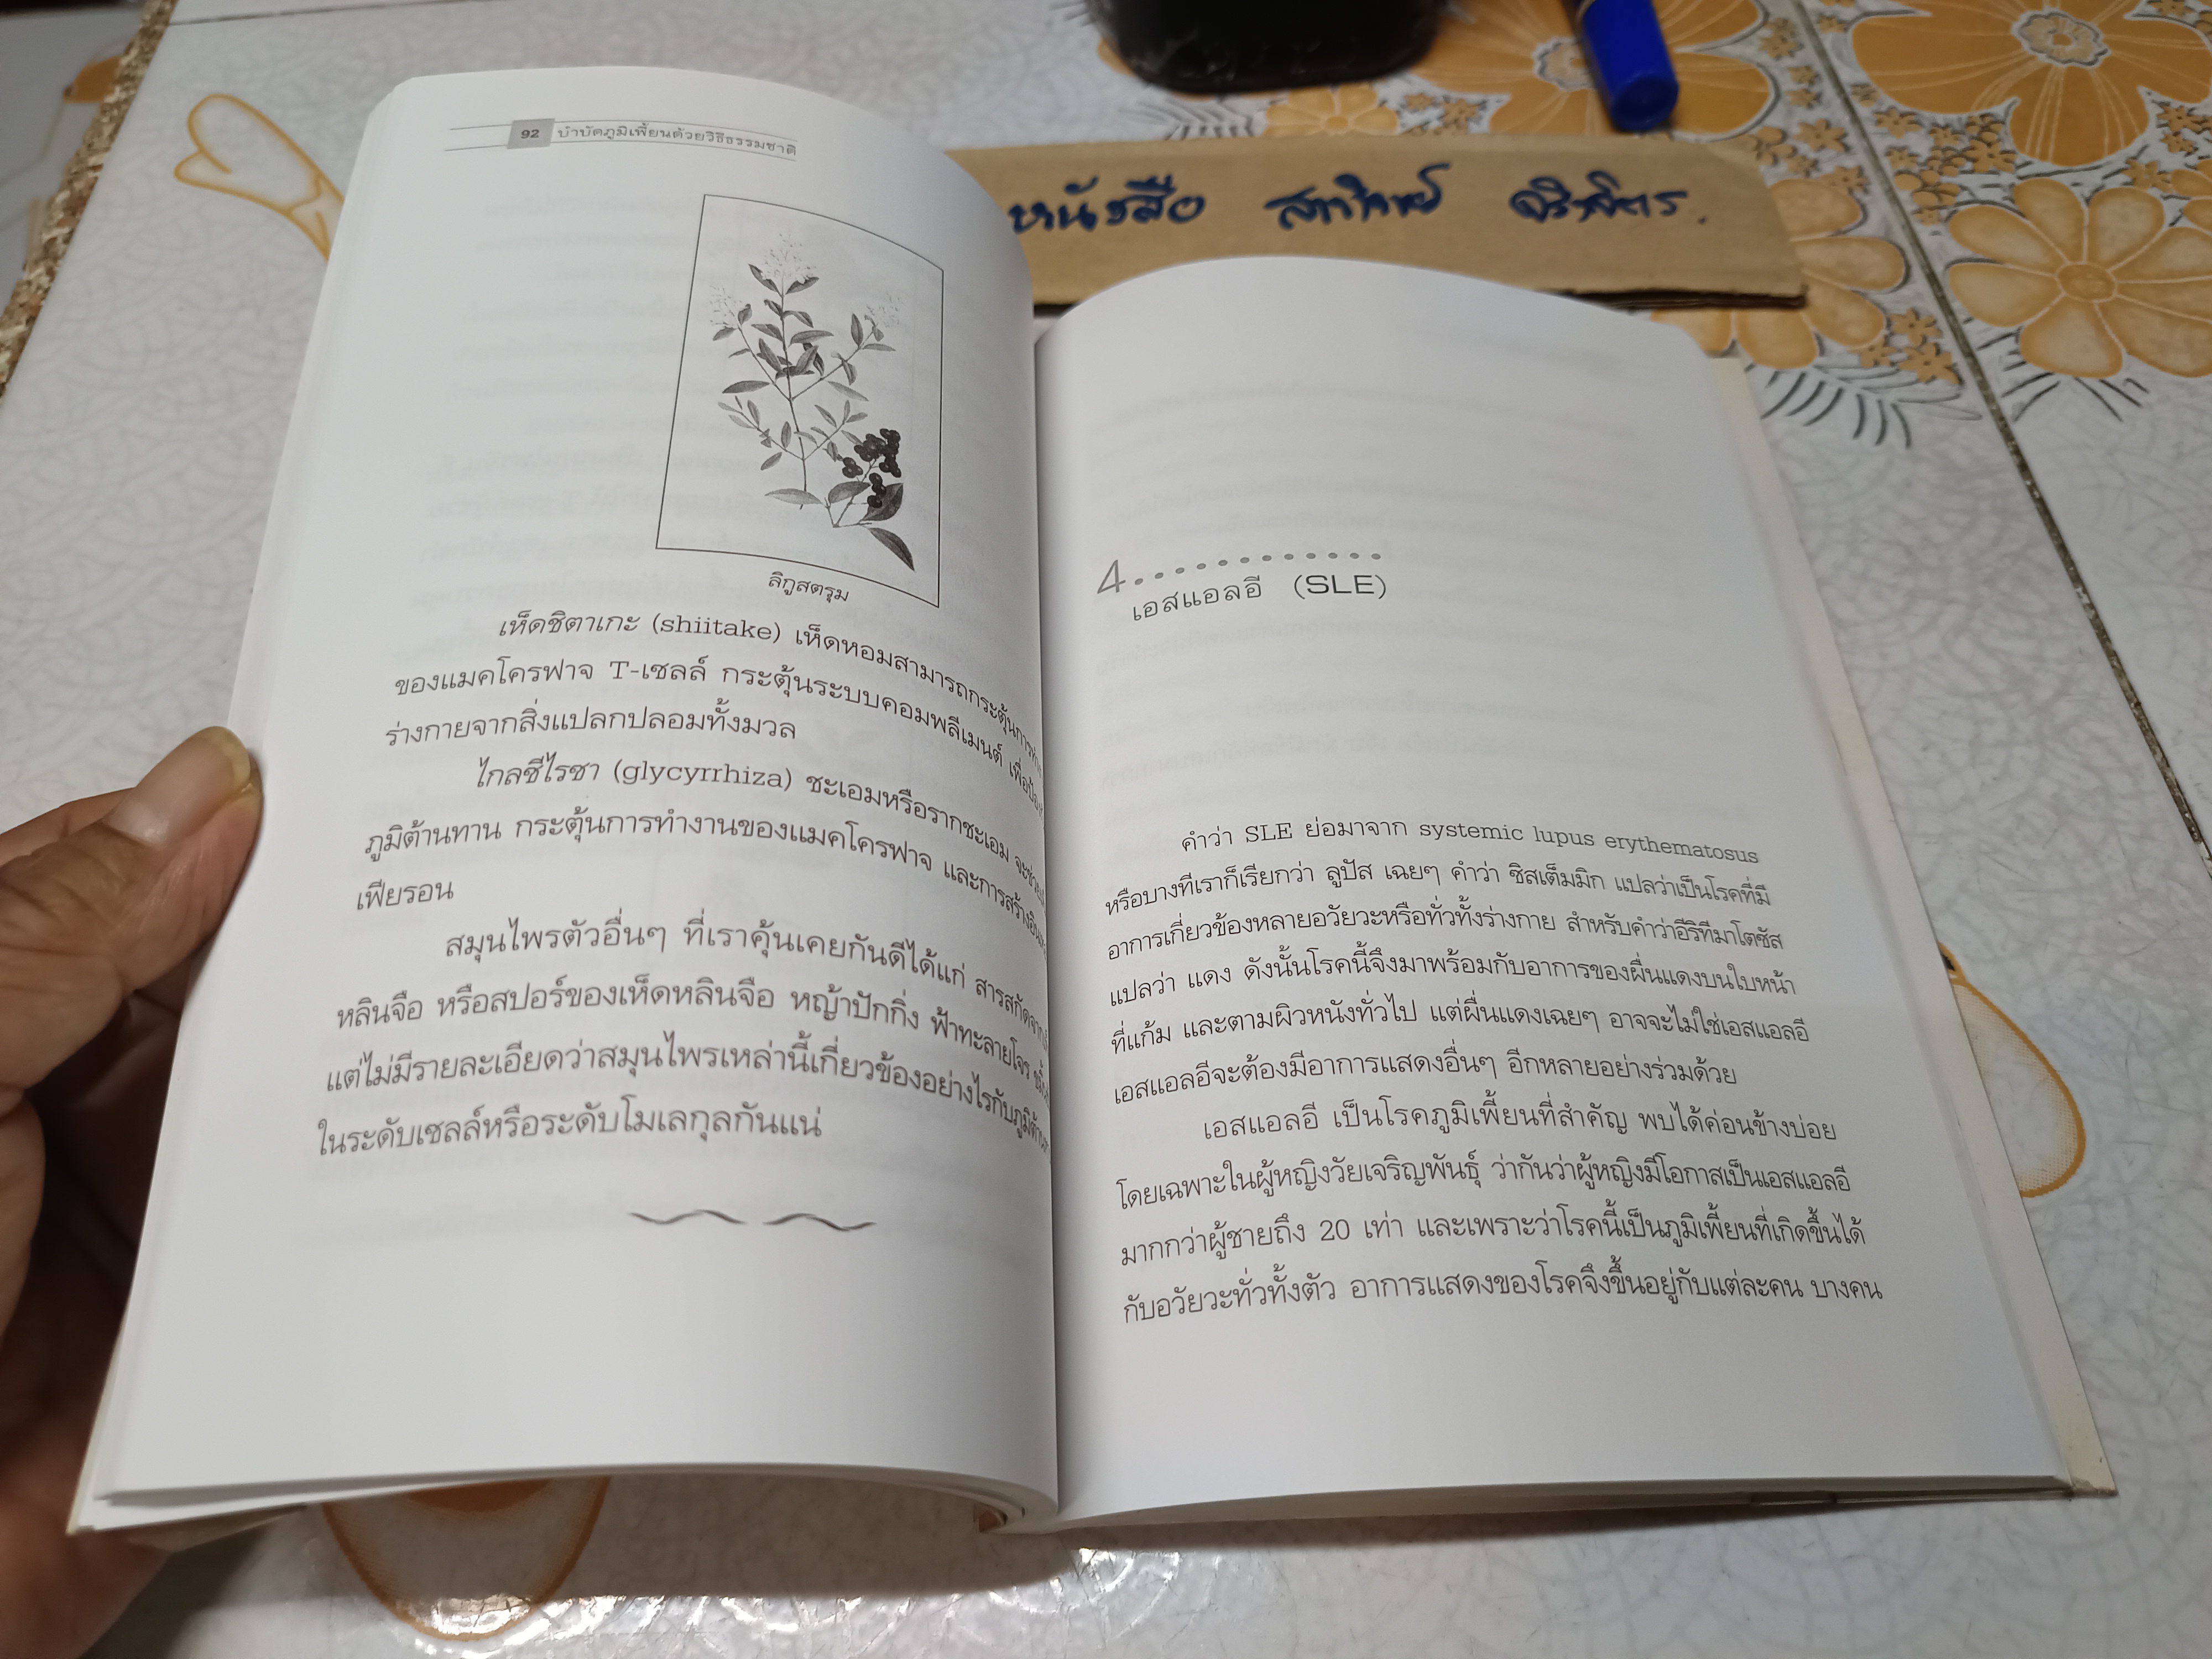 92 บำบัดภูมิเพี้ยนด้วยวิธีธรรมชาติ
ลิกูสตรุม
เห็ดชิตาเกะ (shiitake) เห็ดหอมสามารถกระตุ้นการ
ของแมคโครฟาจ T-เซลล์ กระตุ้นระบบคอมพลีเมนต์ เพื่อ
ร่างกายจากสิ่งแปลกปลอมทั้งมวล
ไกลซีไรซา (glycyrrhiza) ชะเอมหรือรากชะเอม
ภูมิต้านทาน กระตุ้นการทำงานของแมคโครฟาจ และการสร้าง
เฟียรอน
สมุนไพรตัวอื่นๆ ที่เราคุ้นเคยกันดีได้แก่ สารสกัด
หลินจือ หรือสปอร์ของเห็ดหลินจือ หญ้าปักกิ่ง ฟ้าทะลายโจร
แต่ไม่มีรายละเอียดว่าสมุนไพรเหล่านี้เกี่ยวข้องอย่างไรกับ
ในระดับเซลล์หรือระดับโมเลกุลกันแน่
หนังสือ
4
เอสแอลอี (SLE)
คำว่า SLE ย่อมาจาก systemic lupus erythematosus
หรือบางทีเราก็เรียกว่า ลูปัส เฉยๆ คำว่า ซิสเต็มมิก แปลว่าเป็นโรคที่มี
อาการเกี่ยวข้องหลายอวัยวะหรือทั่วทั้งร่างกาย สำหรับคำว่าอีริทีมาโตซัส
แปลว่า แดง ดังนั้นโรคนี้จึงมาพร้อมกับอาการของผื่นแดงบนใบหน้า
ที่แก้ม และตามผิวหนังทั่วไป แต่ผื่นแดงเฉยๆ อาจจะไม่ใช่เอสแอลอี
เอสแอลอีจะต้องมีอาการแสดงอื่นๆ อีกหลายอย่างร่วมด้วย
เอสแอลอี เป็นโรคภูมิเพี้ยนที่สำคัญ พบได้ค่อนข้างบ่อย
โดยเฉพาะในผู้หญิงวัยเจริญพันธุ์ ว่ากันว่าผู้หญิงมีโอกาสเป็นเอสแอลอี
มากกว่าผู้ชายถึง 20 เท่า และเพราะว่าโรคนี้เป็นภูมิเพี้ยนที่เกิดขึ้นได้
กับอวัยวะทั่วทั้งตัว อาการแสดงของโรคจึงขึ้นอยู่กับแต่ละคน บางคน